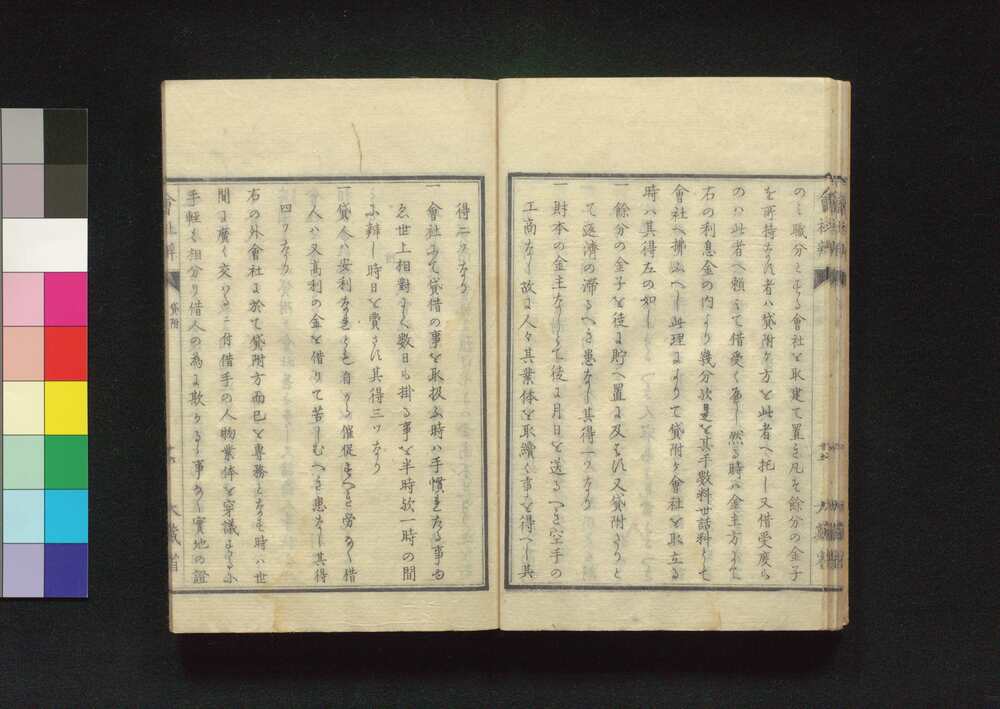 のミ職分とする會社を取建て置き凡そ餘分の金子
を所持する者ハ貸附ケ方を此者へ托し又借受度き
のハ此者へ頼ミて借受く可し然る時ハ金主方にて
右の利息金の内より幾分歟是を其手數料世話料として
會社へ拂ふへし此理によりて貸附ケ會社を取立る
時ハ其得左の如し
一餘分の金子を徒に貯へ置に及はす又貸附さりと
て返濟の滞るへき患なし其得一ツなり
一財本の金主なくして徒に月日を送るへき空手の
工商なし故に人々其業体を取續く事を得へし其
得二ツなり
一會社にて貸借の事を取扱ふ時ハ手慣れたる事由
ゑ世上相對にて數日も掛る事を半時歟一時の間
に辨し時日を費さす其得三ツなり
一貸人ハ安利なれとも自から催促すへき勞なく借
人ハ又高利の金を借りて苦しむへき患なし其得
四ツなり
右の外會社に於て貸附方而已を專務となす時ハ世
間に廣く交わるに付借手の人物業体を穿議するに
手軽も相分り借人の為に欺かるゝ事なく實地の證
會社辨
貸附
大藏省